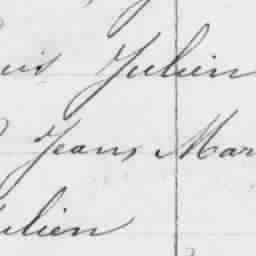 uis Julien
Jean, Mar
ulien